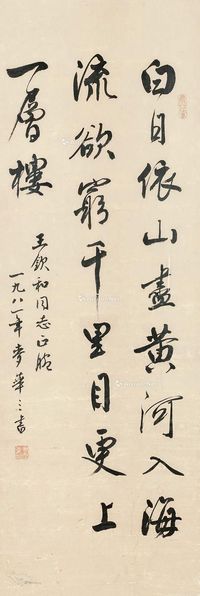 白日依山盡黄河入海
流欲窮千里目更上
一層樓
王欽和同志正腕
一九八一年麥華三書